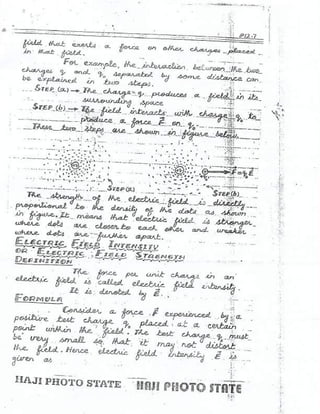 P12-7
field that exerts a force on other charges placed
in that field.
For example, the interaction between the two
charges q and q₀ separated by some distance can
be explained in two steps.
STEP (a) → The charge q produces a field in its
surrounding space
STEP (b) → The field interacts with charge q₀ to
produce a force F on q₀.
These two steps are shown in figure below
F=q₀E
STEP(a) STEP(b)
The strength of the electric field is directly
proportional to the density of the dots as shown
in figure. It means that electric field is stronger
where dots are closer to each other and weaker
where dots are further apart.
ELECTRIC FIELD INTENSITY
OR ELECTRIC FIELD STRENGTH
DEFINITION
The force per unit charge in an
electric field is called electric field intensity.
It is denoted by E.
FORMULA
Consider a force F experienced by a
positive test charge q₀ placed at a certain
point within the field. The test charge q₀ must
be very small so that it may not distort
the field. Hence electric field intensity E is
given as
HAJI PHOTO STATE HAJI PHOTO STATE